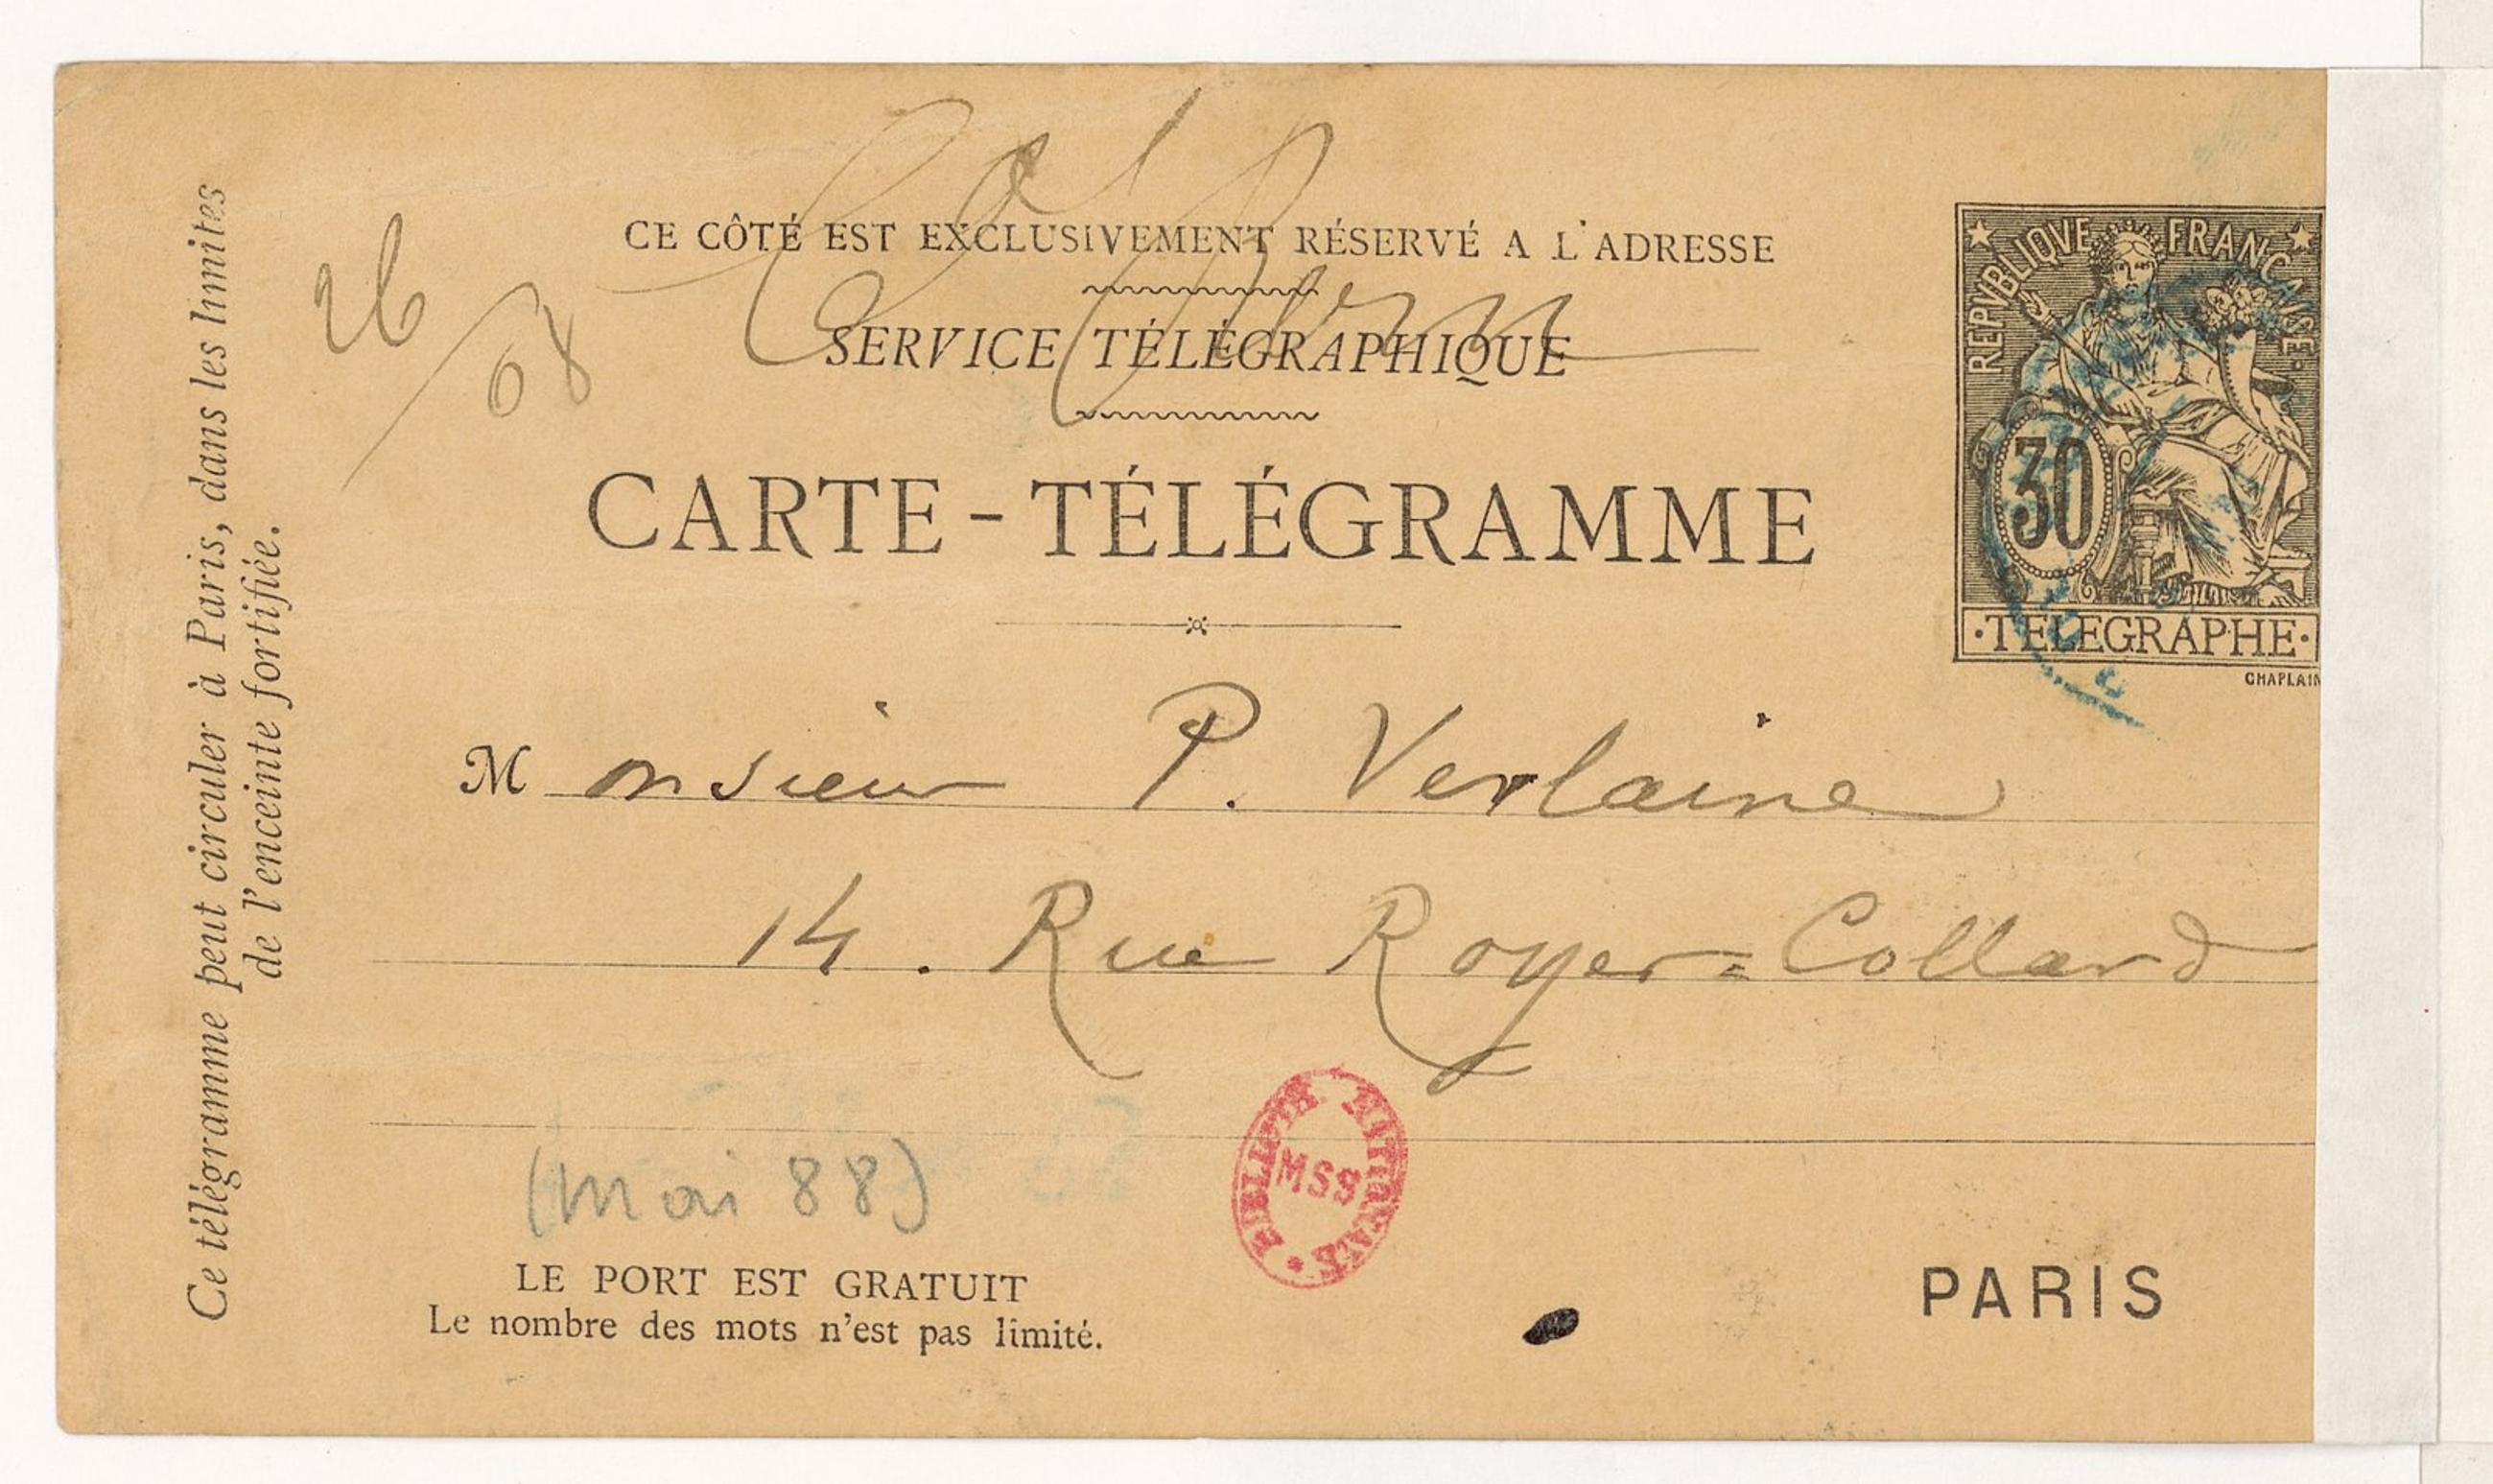 CE CÔTÉ EST EXCLUSIVEMENT RÉSERVÉ A L'ADRESSE
SERVICE TÉLÉGRAPHIQUE
CARTE-TÉLÉGRAMME
REPVBLIQVE FRANÇAISE.
30
·TELEGRAPHE·
CHAPLAIN
Ce télégramme peut circuler à Paris, dans les limites
de l'enceinte fortifiée.
Monsieur P. Verlaine
14. Rue Royer-Collard
(mai 88)
BIBLIOTH. NATIONALE
MSS
LE PORT EST GRATUIT
Le nombre des mots n'est pas limité.
PARIS